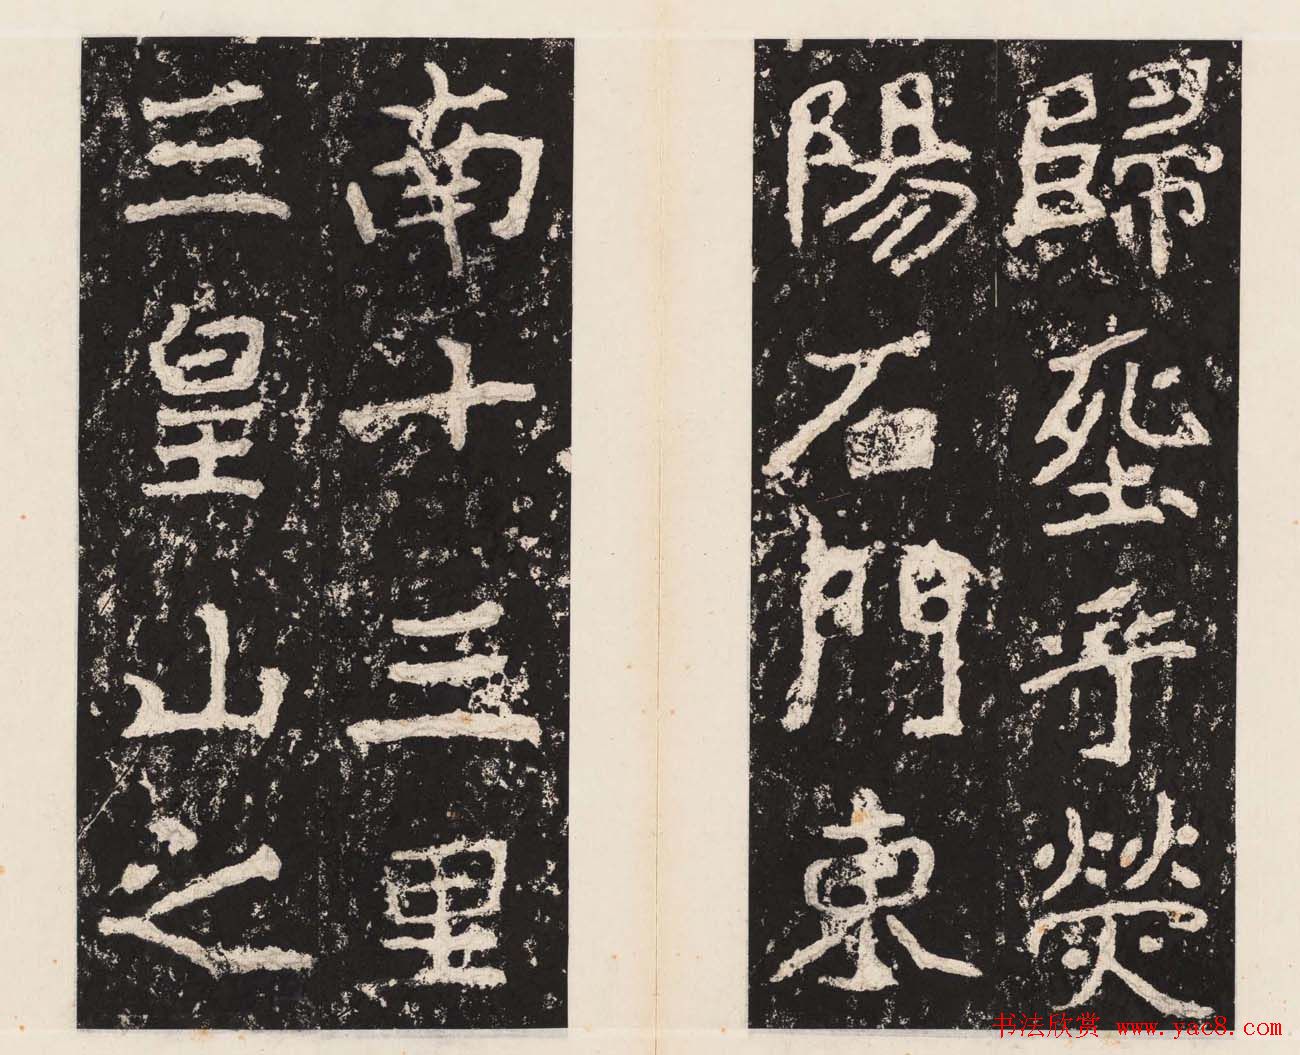 歸塟乎熒
陽石門東
南十三里
三皇山之
书法欣赏 www.yac8.com